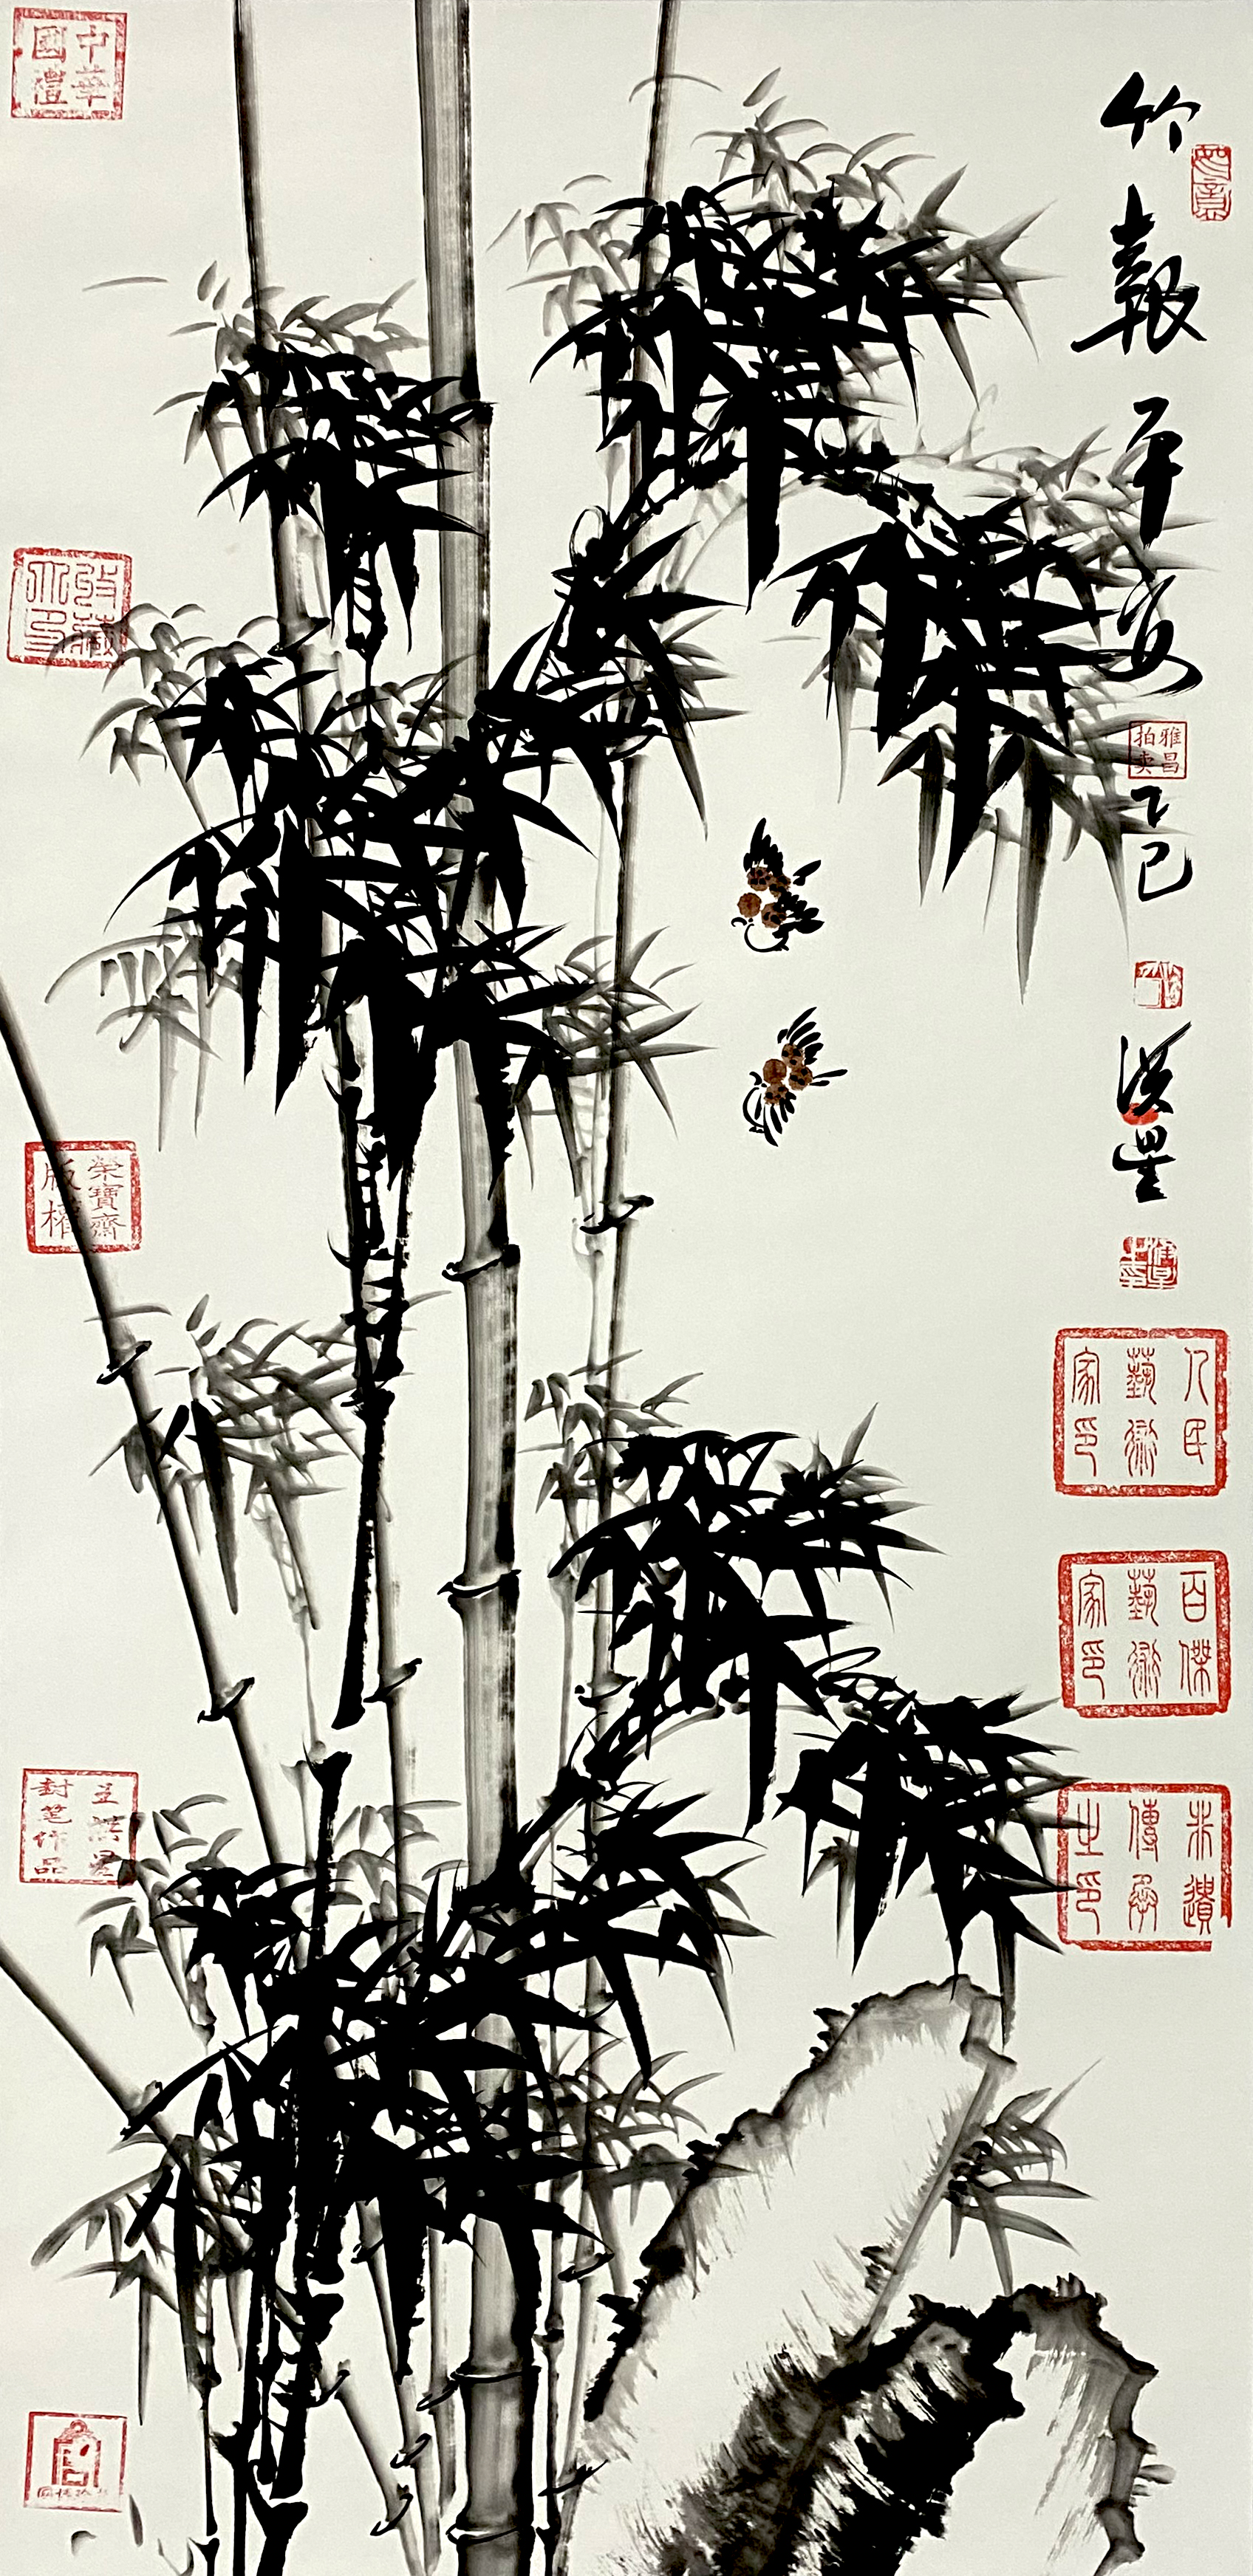 竹報平安
乙巳
洪星
中華國禮
收藏之印
榮寶齋版權
王洪星封笔作品
雅昌拍卖
人民藝術家印
百傑藝術家印
非遺傳承之印